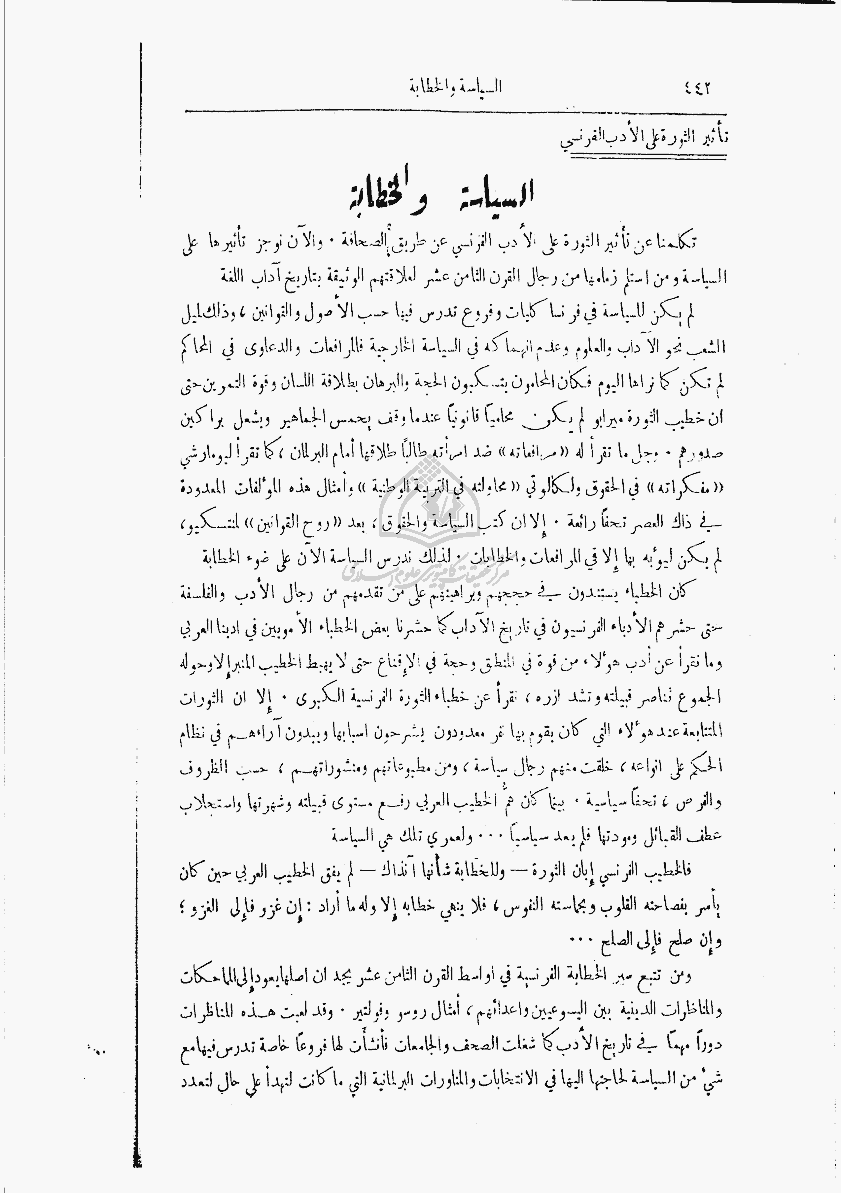 ٤٤٢
السياسة والخطابة
تأثير الثورة على الأدب الفرنسي
السياسة والخطابة
تكلمنا عن تأثير الثورة على الأدب الفرنسي عن طريق الصحافة . والآن نوجز تأثيرها على
السياسة ومن استلم زمامها من رجال القرن الثامن عشر لعلاقتهم الوثيقة بتاريخ آداب اللغة
لم يكن للسياسة في فرنسا كليات وفروع تدرس فيها حسب الأصول والقوانين ، وذاك لميل
الشعب نحو الآداب والعلوم وعدم انهماكه في السياسة الخارجية فالمرافعات والدعاوى في المحاكم
لم تكن كما نراها اليوم فكان المحامون يتمسكون الحجة والبرهان بطلاقة اللسان وقوة التمرين حتى
ان خطيب الثورة ميرابو لم يكن محامياً قانونياً عندما وقف يحمس الجماهير ويشعل براكين
صدورهم . وجل ما نقرأ له «مرافعاته» ضد امرأته طالباً طلاقها أمام البرلمان ، كما نقرأ لبومارشي
«مفكراته» في الحقوق ولكالوتي «محاولته في التربية الوطنية» وأمثال هذه المؤلفات المعدودة
في ذاك العصر تحفاً رائعة . إلا ان كتب السياسة والحقوق ، بعد «روح القوانين» لمنتسكيو ،
لم يكن ليؤبه بها إلا في المرافعات والخطابات . لذلك ندرس السياسة الآن على ضوء الخطابة
كان الخطباء يستندون في حججهم وبراهينهم على من تقدمهم من رجال الأدب والفلسفة
حتى حشرهم الأدباء الفرنسيون في تاريخ الآداب كما حشرنا بعض الخطباء الأمويين في ادبنا العربي
وما نقرأ عن أدب هؤلاء من قوة في المنطق وحجة في الإقناع حتى لا يهبط الخطيب المنبر إلا وحوله
الجموع تناصر قبيلته وتشد ازره ، نقرأ عن خطباء الثورة الفرنسية الكبرى . إلا ان الثورات
المتتابعة عند هؤلاء التي كان يقوم بها نفر معدودون يشرحون اسبابها ويبدون آراءهم في نظام
الحكم على انواعه ، خلقت منهم رجال سياسة ، ومن مطبوعاتهم ومنشوراتهم ، حسب الظروف
والفرص ، تحفاً سياسية . بينما كان همُّ الخطيب العربي رفع مستوى قبيلته وشهرتها واستجلاب
عطف القبائل ومودتها فلم يعد سياسياً ... ولعمري تلك هي السياسة
فالخطيب الفرنسي إبان الثورة — وللخطابة شأنها آنذاك — لم يفق الخطيب العربي حين كان
يأسر بفصاحته القلوب وبحماسته النفوس ، فلا ينهي خطابه إلا وله ما أراد : إن غزو فإلى الغزو ؛
وإن صلح فإلى الصلح ...
ومن تتبع سير الخطابة الفرنسية في اواسط القرن الثامن عشر يجد ان اصلها يعود إلى المماحكات
والمناظرات الدينية بين اليسوعيين واعدائهم ، أمثال روسو وفولتير . وقد لعبت هذه المناظرات
دوراً مهماً في تاريخ الأدب كما شغلت الصحف والجامعات فأنشأت لها فروعاً خاصة تدرس فيها مع
شيء من السياسة لحاجتها اليها في الانتخابات والمناورات البرلمانية التي ما كانت لتهدأ على حال لتعدد